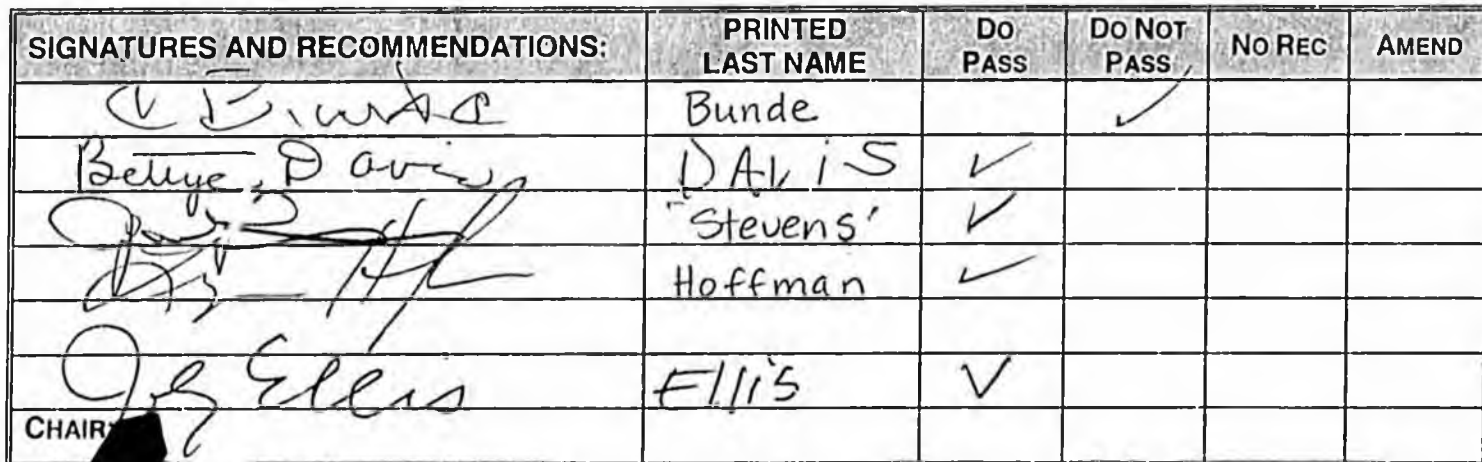 SIGNATURES AND RECOMMENDATIONS: PRINTED LAST NAME DO PASS DO NOT PASS NO REC AMEND
Bunde ✓
Bettye Davis DAVIS ✓
"Stevens' ✓
Hoffman ✓
Ellis Ellis ✓
CHAIR